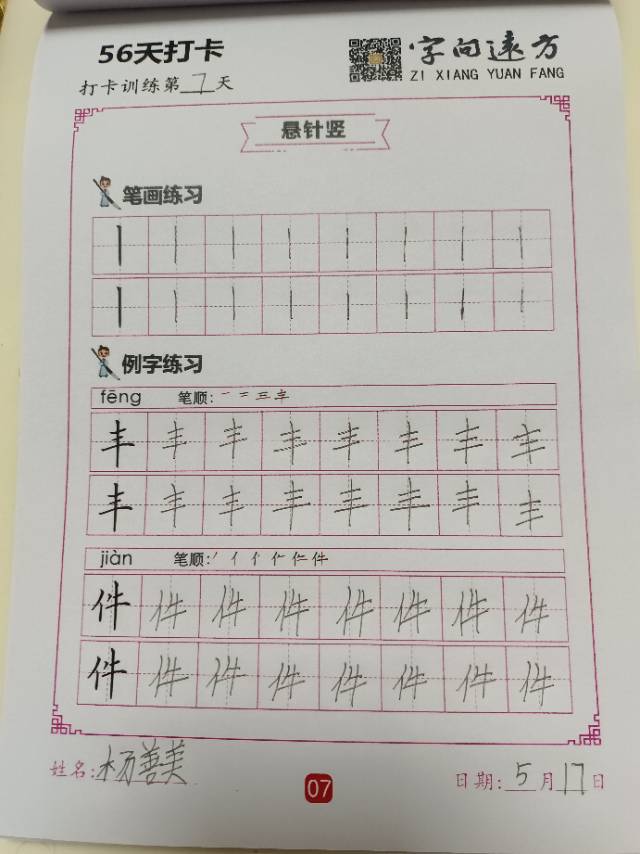 56天打卡
字向远方
打卡训练第7天
ZI XIANG YUAN FANG
悬针竖
笔画练习
例字练习
fēng 笔顺: 一 二 三 丰
丰 丰 丰 丰 丰 丰 丰 丰
丰 丰 丰 丰 丰 丰 丰 丰
jiàn 笔顺: 丿 亻 亻 仁 仁 件
件 件 件 件 件 件 件 件
件 件 件 件 件 件 件 件
姓名:杨善美
07
日期:5月17日